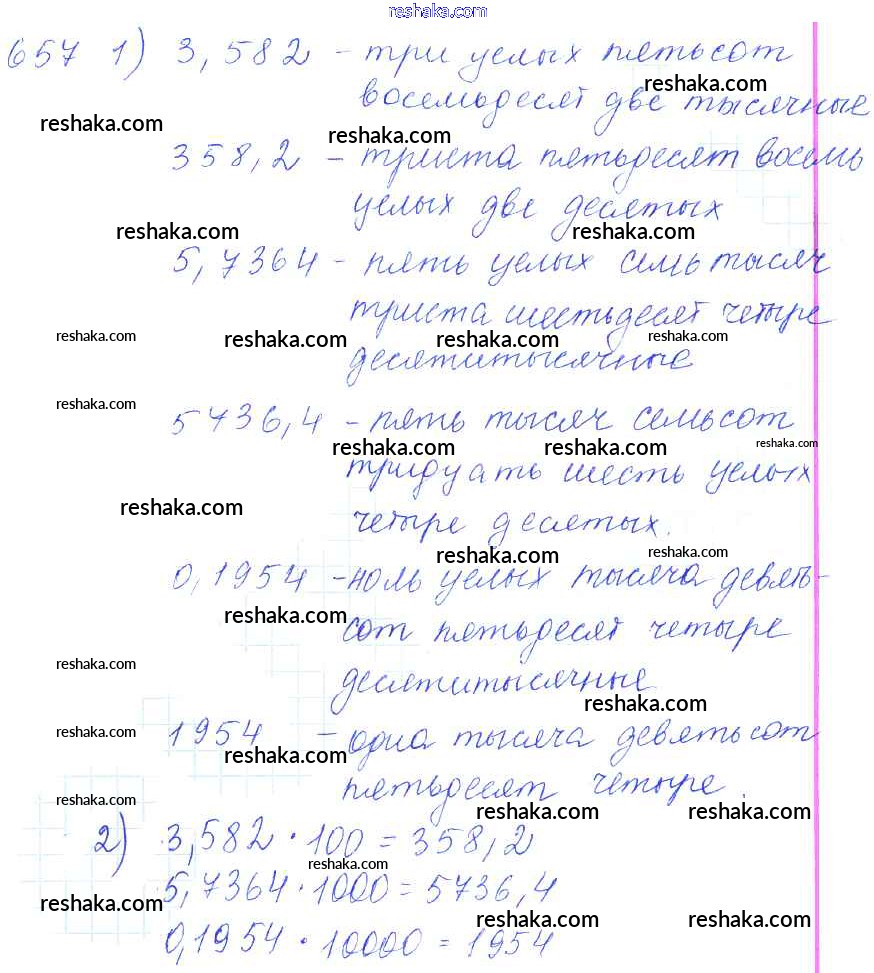 reshaka.com
657 1) 3,582 - три целых пятьсот
reshaka.com
восемьдесят две тысячные
reshaka.com reshaka.com
358,2 - триста пятьдесят восемь
целых две десятых
reshaka.com reshaka.com
5,7364 - пять целых семь тысяч
триста шестьдесят четыре
reshaka.com reshaka.com reshaka.com reshaka.com
десятитысячные
reshaka.com
5736,4 - пять тысяч семьсот
reshaka.com reshaka.com reshaka.com
тридцать шесть целых
reshaka.com
четыре десятых.
reshaka.com reshaka.com
0,1954 - ноль целых тысяча девять-
reshaka.com
сот пятьдесят четыре
reshaka.com
десятитысячные
reshaka.com
1954 - одна тысяча девятьсот
reshaka.com reshaka.com
пятьдесят четыре.
reshaka.com reshaka.com reshaka.com
2) 3,582 · 100 = 358,2
reshaka.com
5,7364 · 1000 = 5736,4
reshaka.com reshaka.com reshaka.com
0,1954 · 10000 = 1954